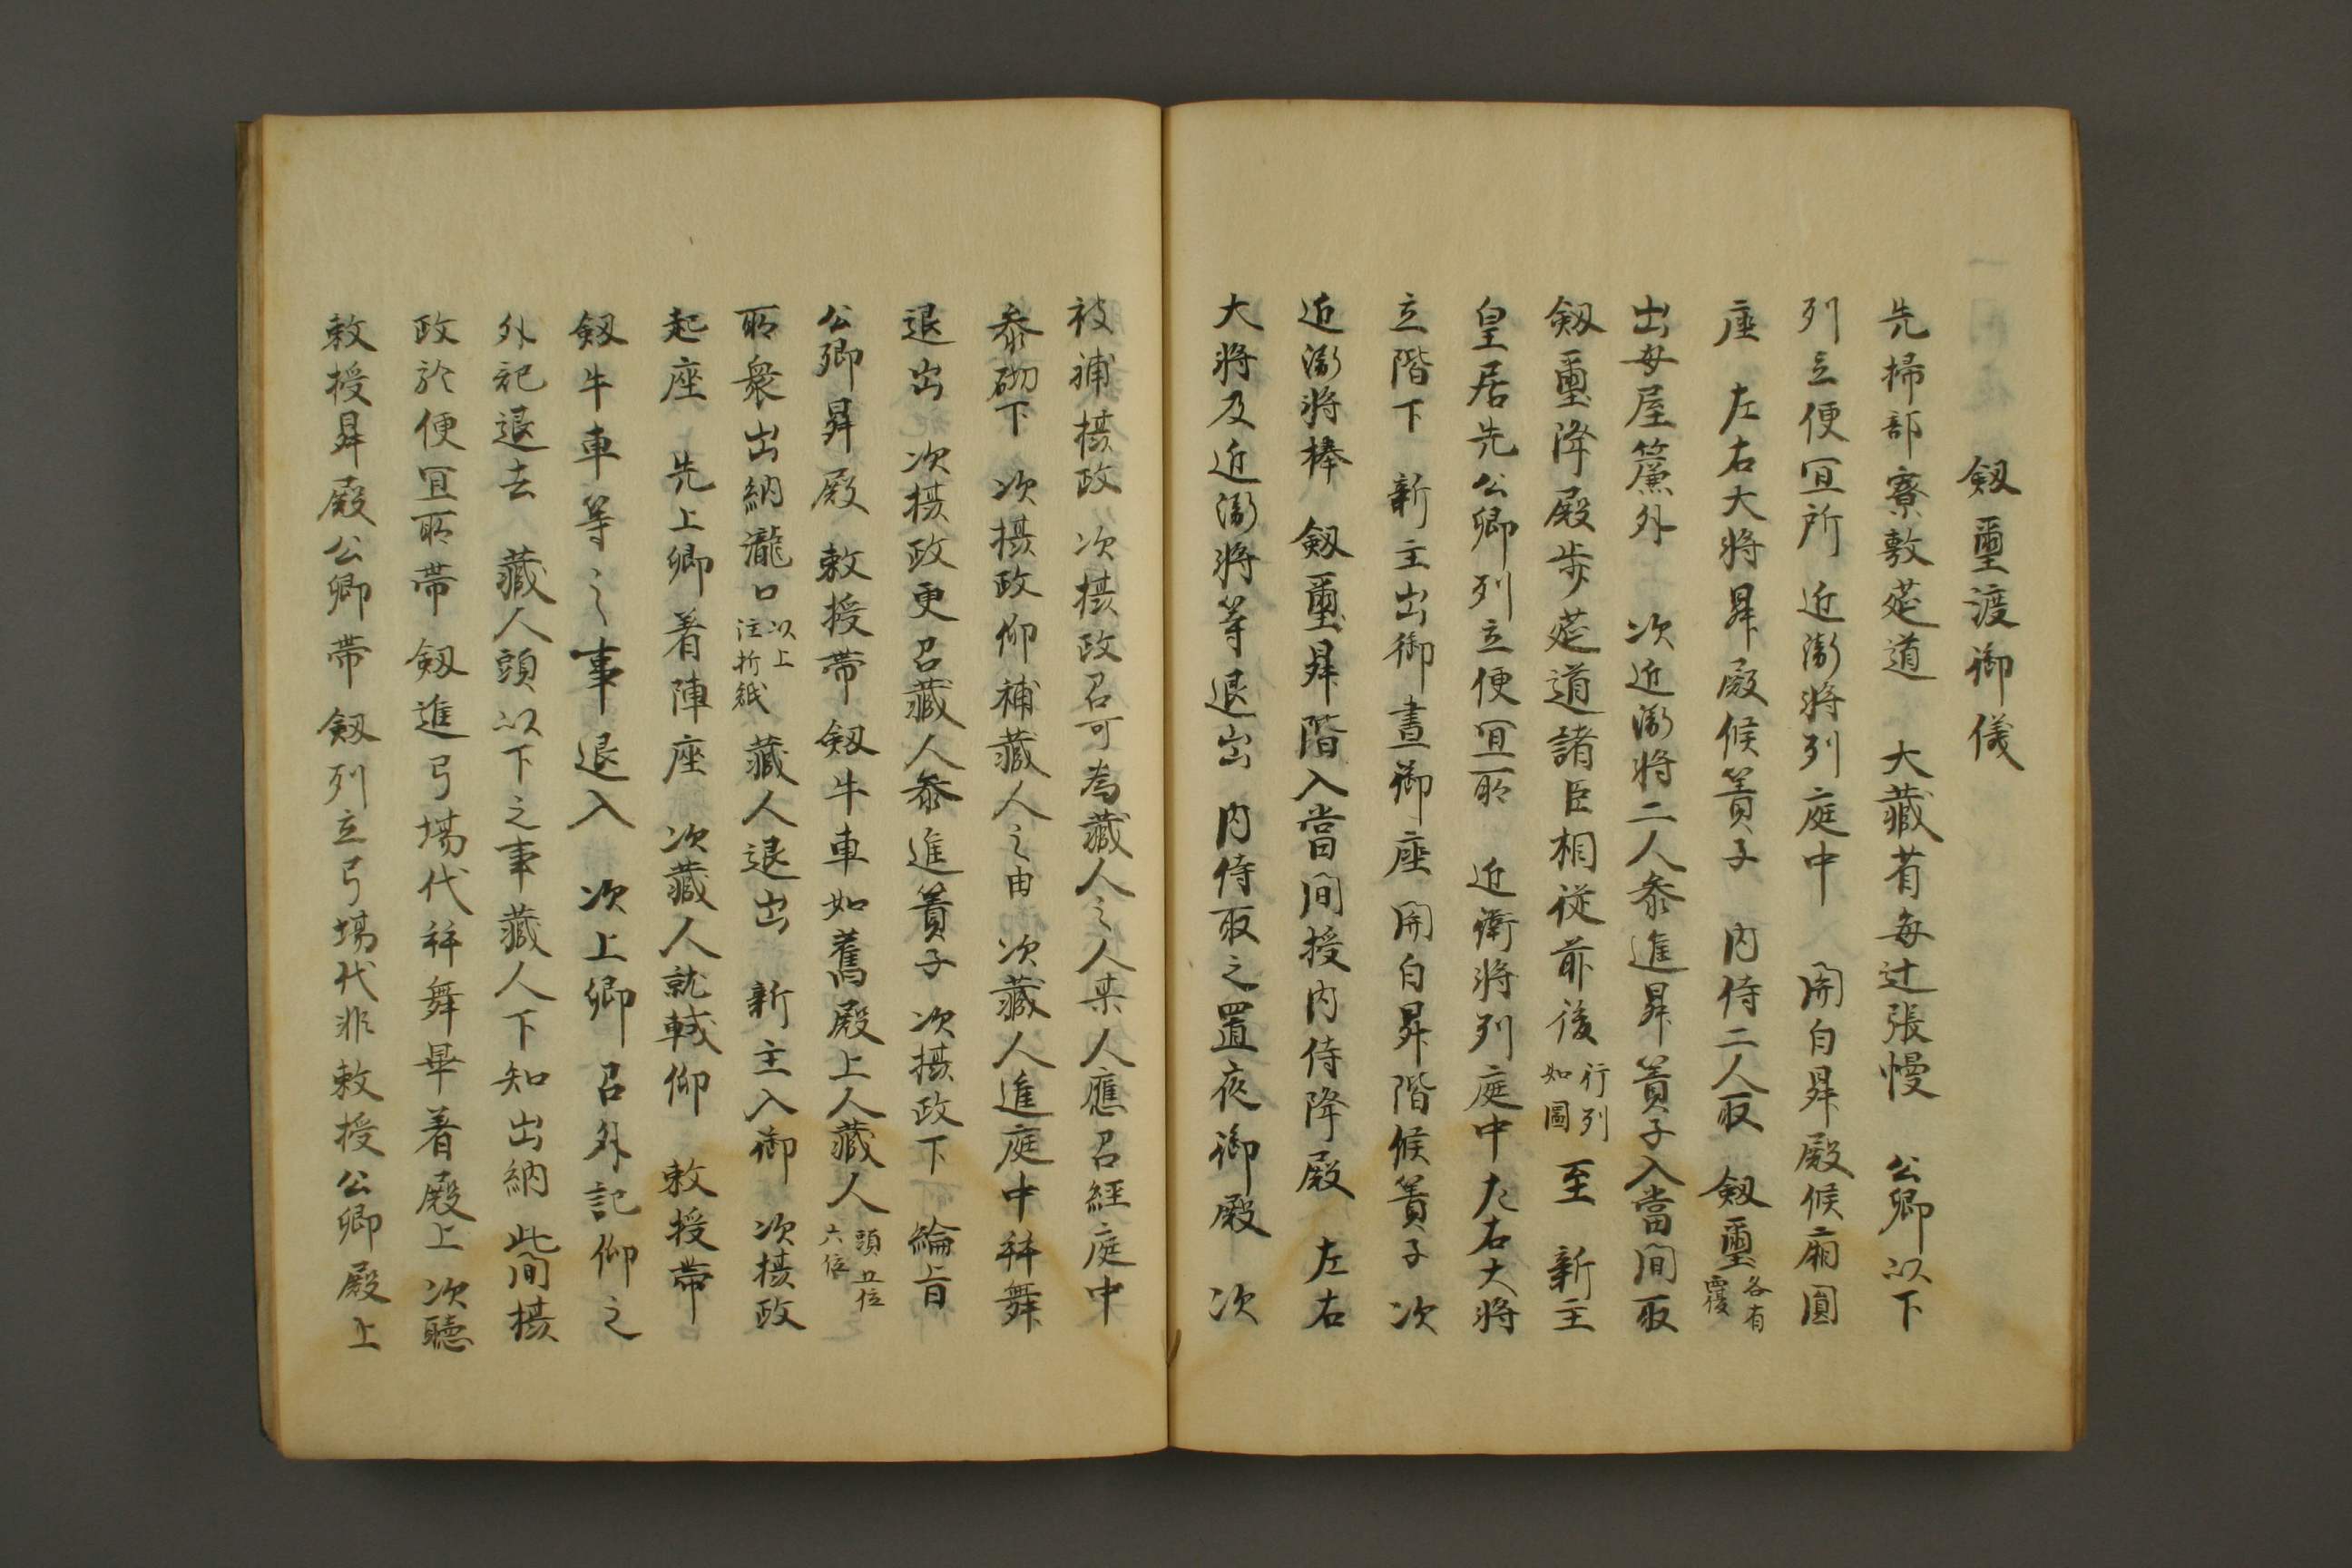 劔璽渡御儀
先掃部寮敷莚道　大藏省每辻張幔　公卿以下
列立便冝所　近衛將列庭中　関白昇殿候廂圓
座　左右大將昇殿候簀子　内侍二人取　劔璽各有覆
出母屋簾外　次近衛將二人参進昇簀子入當間取
劔璽降殿步莚道諸臣相從前後行列如圖至　新主
皇居先公卿列立便冝所　近衛將列庭中左右大將
立階下　新主出御晝御座　関白昇階候簀子　次
近衛將捧　劔璽昇階入當間授内侍降殿　左右
大將及近衛將等退出　内侍取之置夜御殿　次
被補摂政　次摂政召可為藏人之人某人應召經庭中
参砌下　次摂政仰補藏人之由　次藏人進庭中拜舞
退出　次摂政更召藏人参進簀子　次摂政下　綸旨
公卿昇殿　敕授帶　劔牛車如舊殿上人藏人頭五位六位
所衆出納瀧口以上注折紙　藏人退出　新主入御　次摂政
起座　先上卿着陣座　次藏人就軾仰　敕授帶
劔牛車等之事退入　次上卿召外記仰之
外記退去　藏人頭以下之事藏人下知出納　此間摂
政於便冝所帶　劔進弓場代拜舞畢着殿上　次聽
敕授昇殿公卿帶　劔列立弓場代非敕授公卿殿上